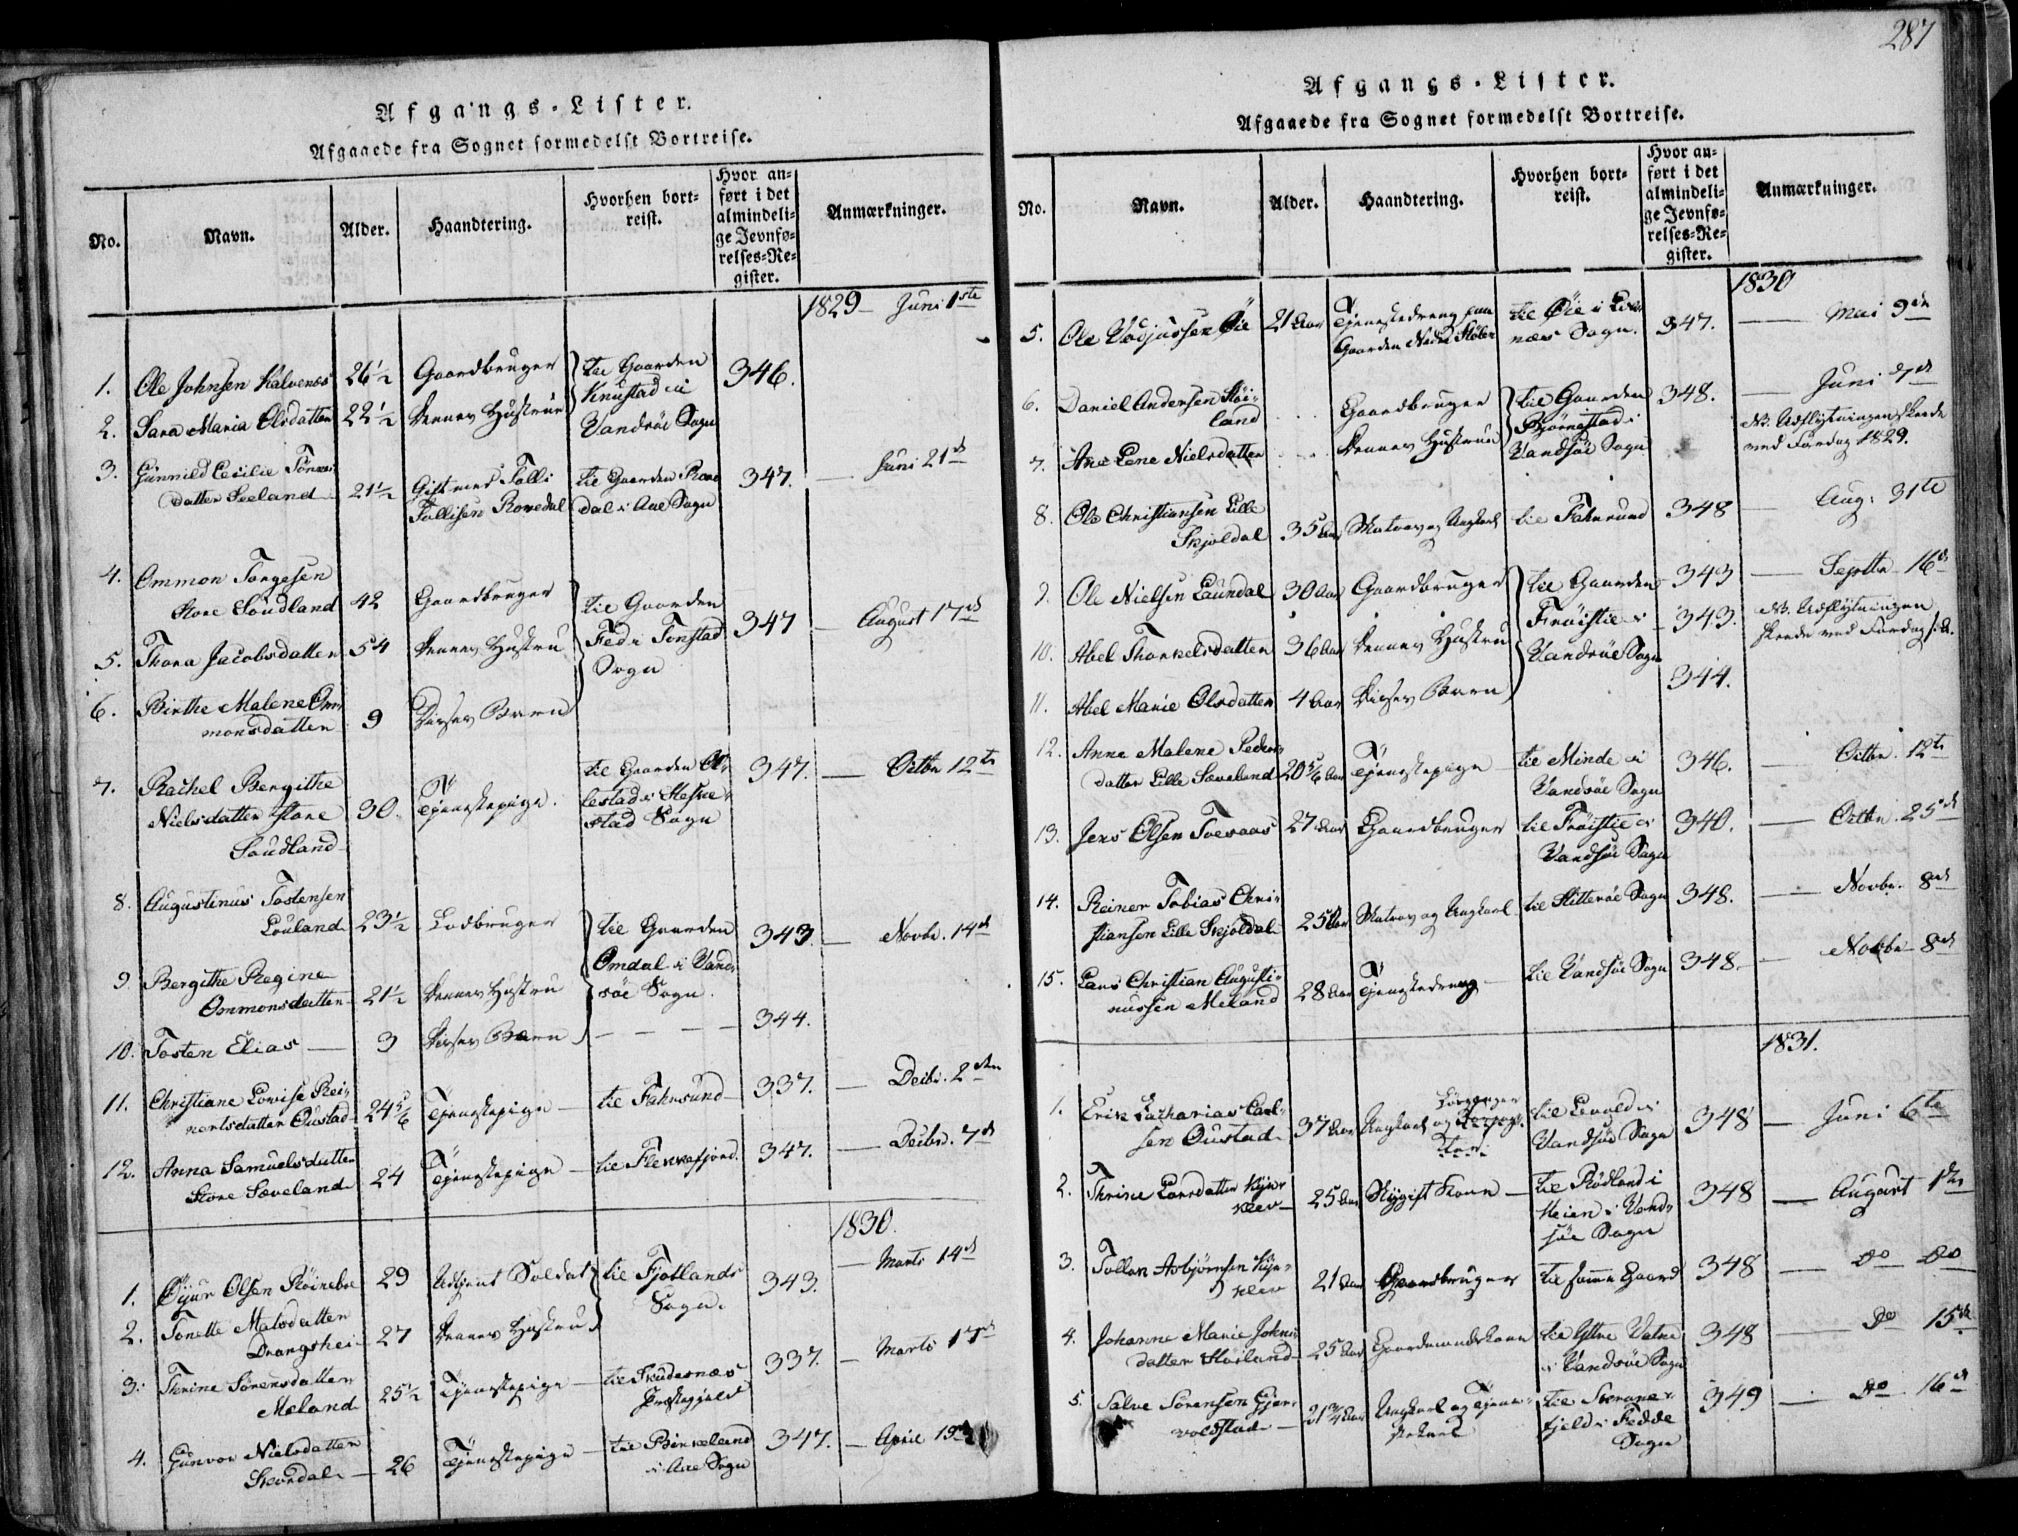 Afgangs-Lister.
Afgaaede fra Sognet formedelst Bortreise.
No. Navn. Alder. Haandtering. Hvorhen bortreist. Hvor anført i det almindelige Jevnførelses-Register. Anmærkninger.
1829 - Juni 1ste
1. Ole Johnsen Kalvenes 26½ Gaardbruger til Gaarden Knustad i Vandsöe Sogn 346.
2. Sara Maria Olsdatter 22½ Dennes Hustrue
3. Gunnild Cecilie Tönnes
datter Seeland 21½ Gift med Tolli Tollisen Rovedal til Gaarden Rovedal i Aae Sogn 347. — Juni 21de
4. Ommon Torgesen
Store Soudland 42 Gaardbruger til Gaarden Fed i Tonstad Sogn 347 — August 17de
5. Thora Jacobsdatter 54 Dennes Hustru
6. Birthe Malene Om-
monsdatter 9 Disses Barn
7. Rachel Bergithe
Nielsdatter Store
Soudland 30. Tjenestepige til Gaarden i Sogn 347. — Octbr 12te
8. Augustinus Tostensen
Louland 23½ Lodbruger til Gaarden Omdal i Vandsöe Sogn. 343 — Novbr. 14de
9. Bergithe Regine
Ommonsdatter 21½ Dennes Hustru
10. Tosten Elias — 3 Disses Barn — — — — 344.
11. Christiane Lovise Rei-
nertsdatter Oustad 24 5/6 Tjenestepige — til Fahrsund 337. — Decbr. 2den
12. Anna Samuelsdatter
Store Sæveland 24 Tjenestepige — til Flekkefjord. 347. — Decbr. 7de
1830.
1. Olsen 29 Soldat til Fjotlands Sogn. 343. — Marts 14de
2. Tonette Matsdatter
Drangshei 27 Dennes Hustru
3. Thrine Sörensdatter
Meland 25½ Tjenestepige — til Skudesnæs Præstegjeld 337. — Marts 17de
4. Gunvor Nielsdatter
26 Tjenestepige — til Birkeland i Aae Sogn 347. — April 19de
287
Afgangs-Lister.
Afgaaede fra Sognet formedelst Bortreise.
No. Navn. Alder. Haandtering. Hvorhen bortreist. Hvor anført i det almindelige Jevnførelses-Register. Anmærkninger.
1830
5. Ole Öie 21 Aar Tjenestedreng paa Gaarden Nedre til Öie i Sogn. 347. — Mai 9de
6. Daniel Andersen Höi-
land . . . Gaardbruger til Gaarden Björnestad i Vandsöe Sogn 348. — Juni 7de
NB. Udflytningen skeede
ved Fardag 1829.
7. Ane Lene Nielsdatter . . . Dennes Hustrue
8. Ole Christiansen Lille
Skjoldal 35 Aar Matros og Ungkarl til Fahrsund 348 — Aug: 31te
9. Ole Nielsen Laundal 30 Aar Gaardbruger til Gaarden Fröistie i Vandsöe Sogn 343 — Septbr 16de
10. Abel Thorkelsdatter 36 Aar Dennes Hustru 343. NB. Udflytningen
skeede ved Fardag
11. Abel Marie Olsdatter 4 Aar Disses Barn 344.
12. Anne Malene Peders-
datter Lille Sæveland 20 5/6 Aar Tjenestepige — til Minde i Vandsöe Sogn 346. — Octbr. 12te
13. Jens Olsen 27 Aar Gaardbruger til Fröistie i Vandsöe Sogn 340. — Octbr. 25de
14. Reiner Tobias Chri-
stiansen Lille Skjoldal 25 Aar Matros og Ungkarl til Hitteröe Sogn 348. — Novbr. 8de
15. Lars Christian Augusti-
nussen Meland 28 Aar Tjenestedreng — til Vandsöe Sogn 348. — Novbr 8de
1831.
1. Erik Zacharias Carl-
sen Oustad 37 Aar Ungkarl og til i Vandsöe Sogn 348 — Juni 6te
2. Thrine Larsdatter
25 Aar Nygift Kone — til Rödland i Heien i Vandsöe Sogn 348 — August 1ste
3. Tollak Asbjörnsen
21 Aar Gaardbruger til samme Gaard 348 — Do Do
4. Johanne Marie Johns-
datter Höiland 25 Aar Gaardmandskone til Ytre Vatne i Vandsöe Sogn 348 — Do 15de
5. Salve Sörensen
21 ¾ Aar Ungkarl og Tjeneste-
karl til i Fedde Sogn 349 — Do 16de